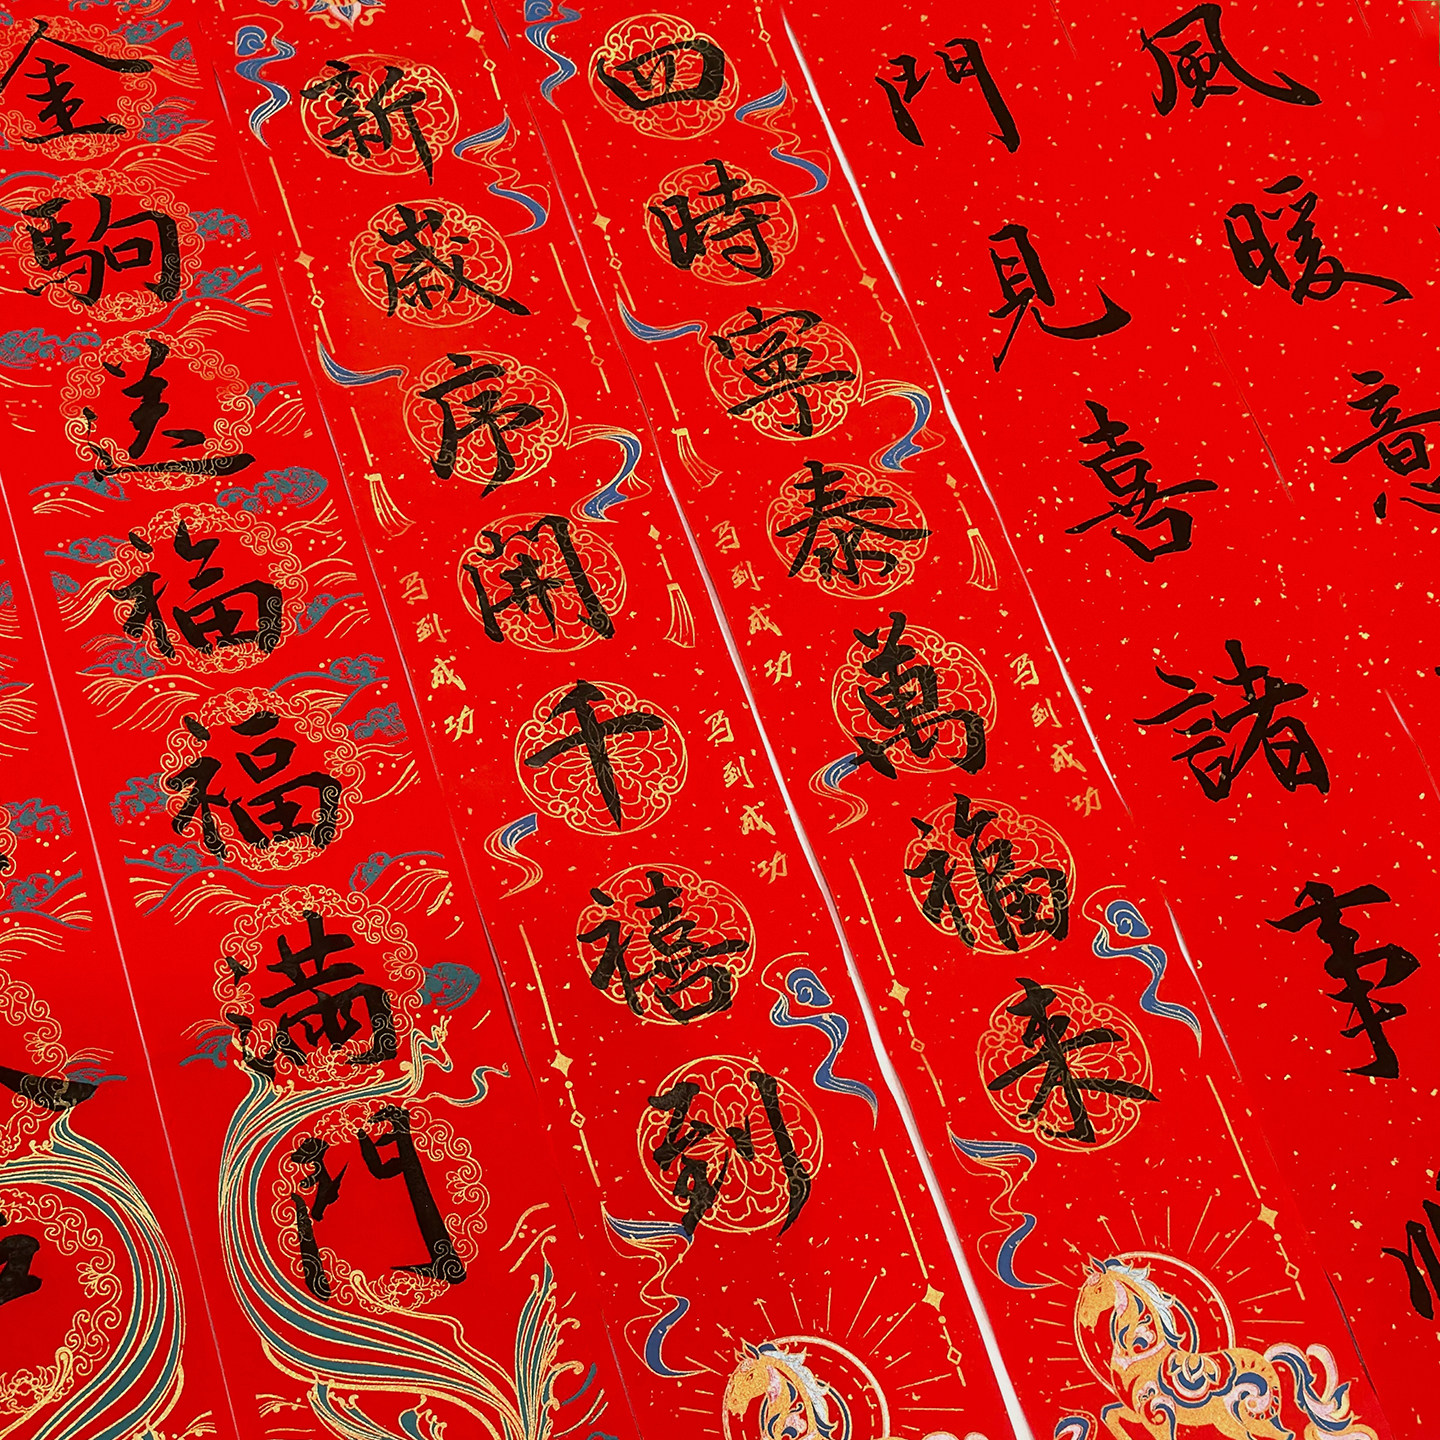 金駒送福福滿門
新歲序開千禧到
四時寧泰萬福來
門見喜諸事順
風暖意
马到成功
马到成功
马到成功